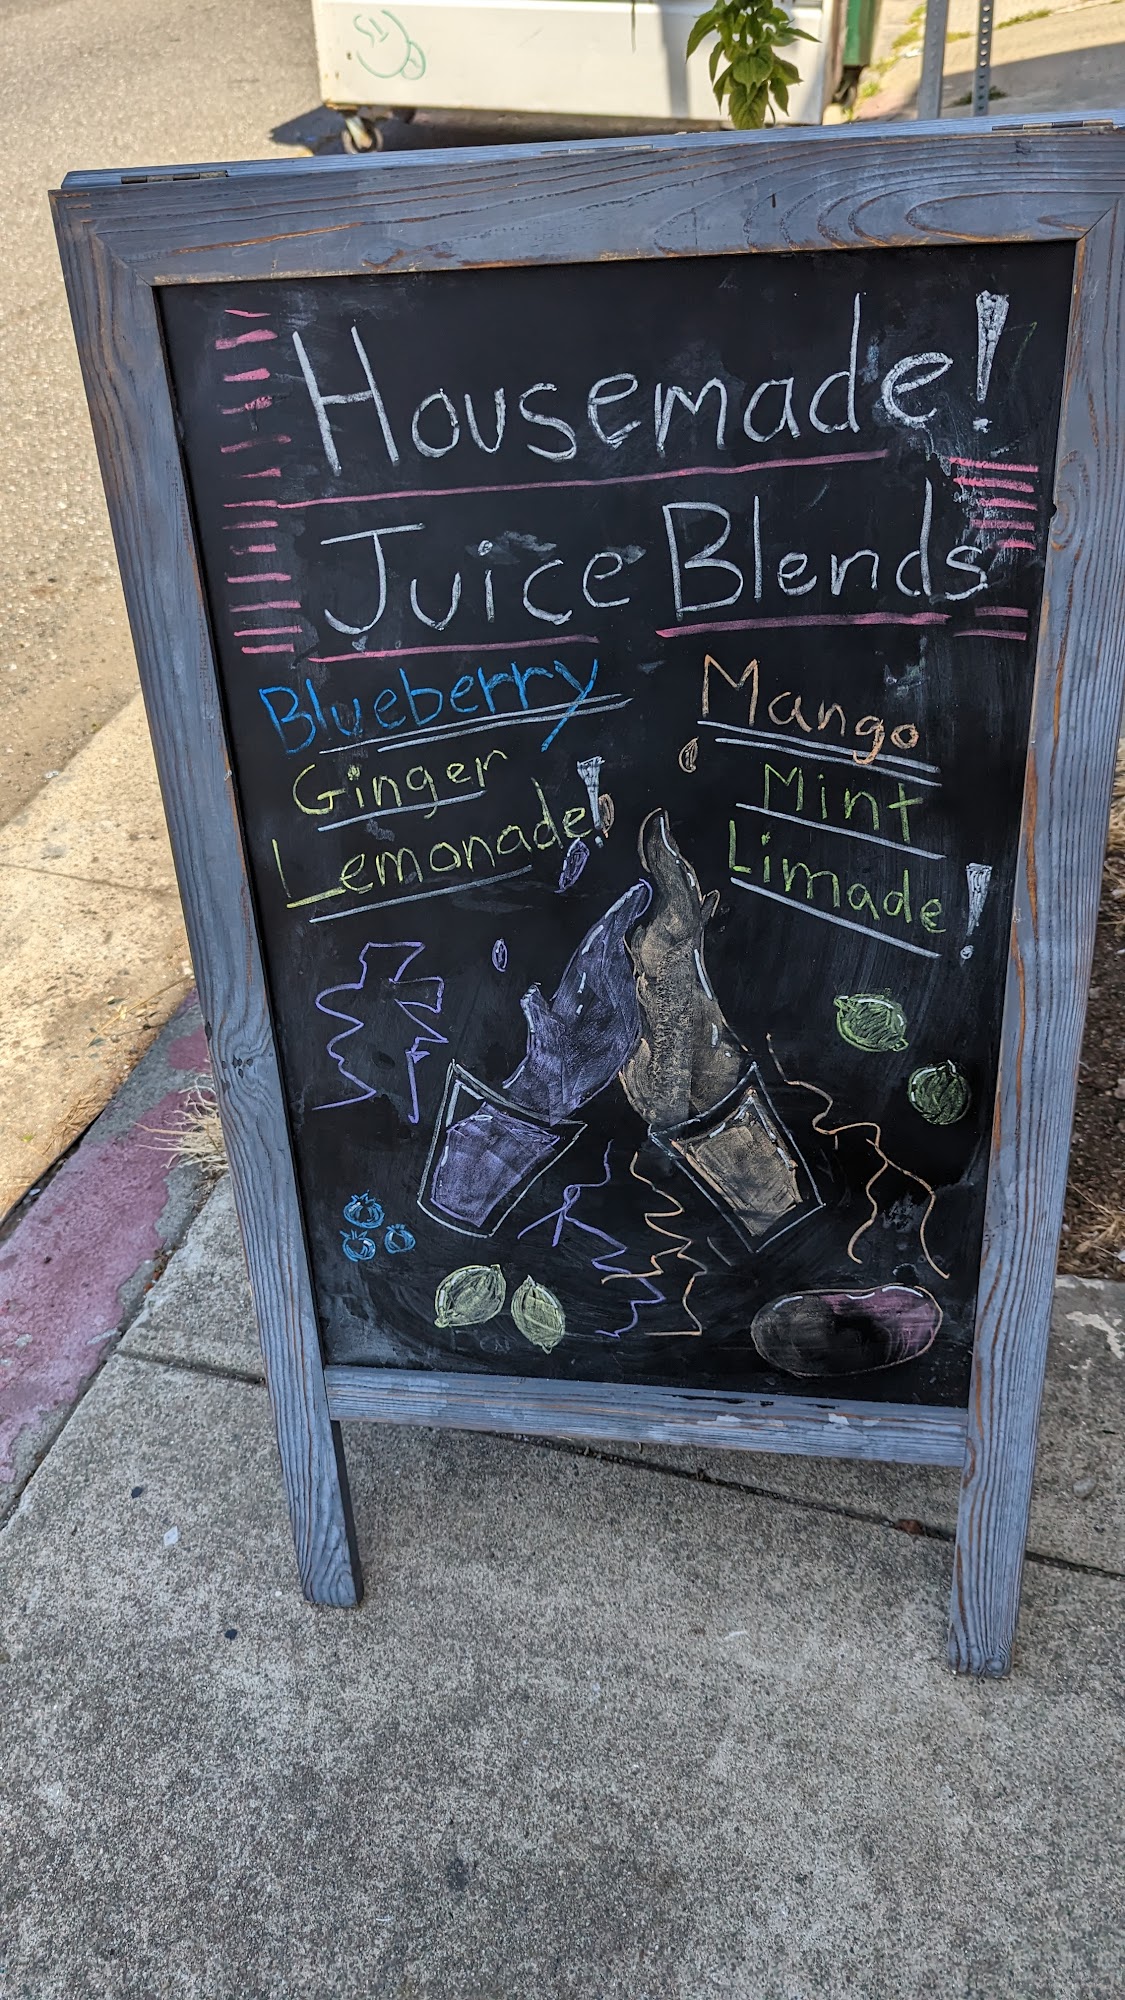 Housemade!
Juice Blends
Blueberry
Ginger
Lemonade!
Mango
Mint
Limade!